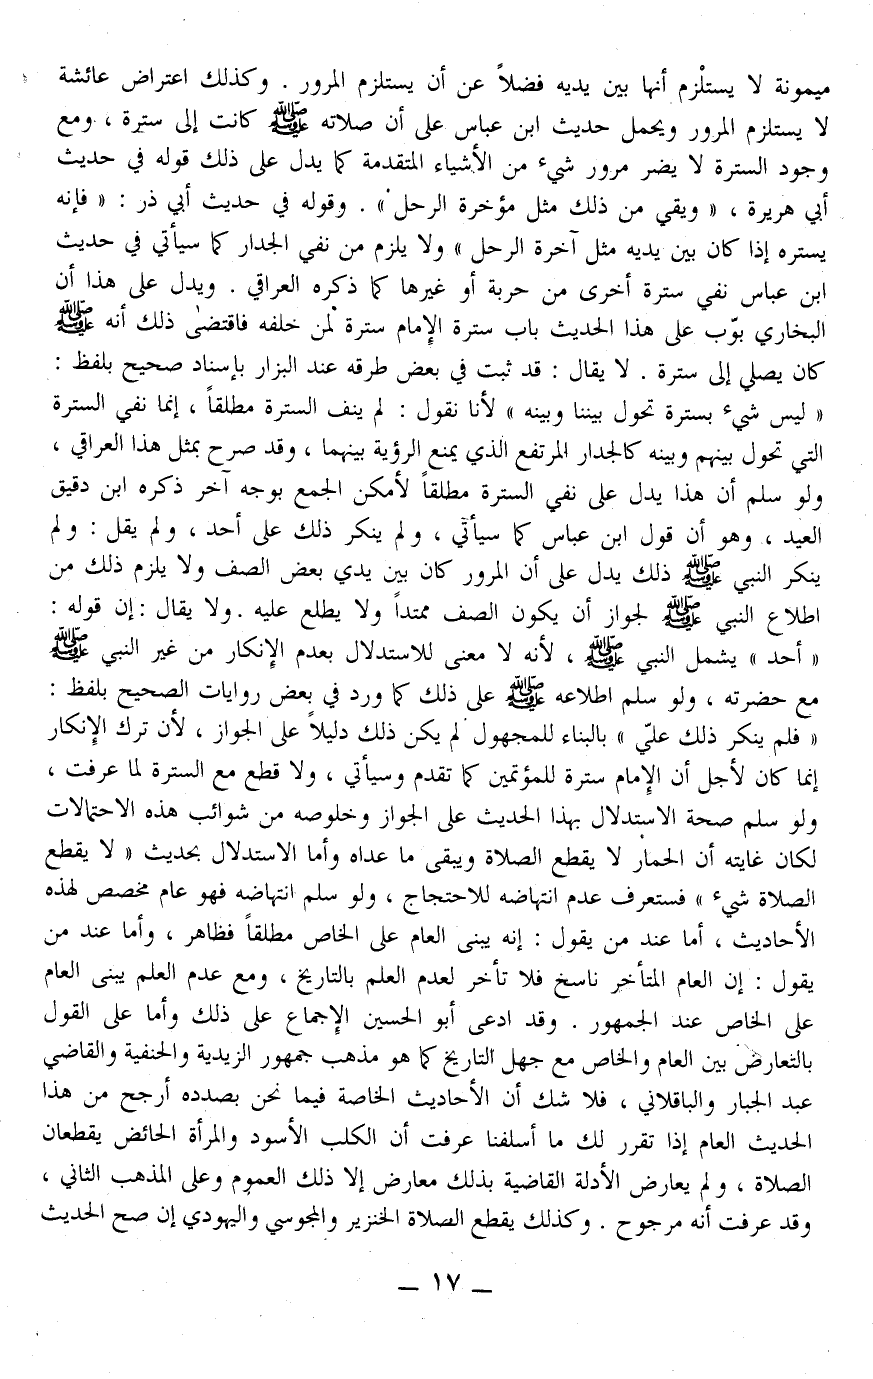 ميمونة لا يستلْزم أنها بين يديه فضلاً عن أن يستلزم المرور . وكذلك اعتراض عائشة
لا يستلزم المرور ويحمل حديث ابن عباس على أن صلاته ﷺ كانت إلى سترة ، ومع
وجود السترة لا يضر مرور شيء من الأشياء المتقدمة كما يدل على ذلك قوله في حديث
أبي هريرة ، « ويقي من ذلك مثل مؤخرة الرحل » . وقوله في حديث أبي ذر : « فإنه
يستره إذا كان بين يديه مثل آخرة الرحل » ولا يلزم من نفي الجدار كما سيأتي في حديث
ابن عباس نفي سترة أخرى من حربة أو غيرها كما ذكره العراقي . ويدل على هذا أن
البخاري بوّب على هذا الحديث باب سترة الإمام سترة لمن خلفه فاقتضىٰ ذلك أنه ﷺ
كان يصلي إلى سترة . لا يقال : قد ثبت في بعض طرقه عند البزار بإسناد صحيح بلفظ :
« ليس شيء بسترة تحول بيننا وبينه » لأنا نقول : لم ينف السترة مطلقاً ، إنما نفي السترة
التي تحول بينهم وبينه كالجدار المرتفع الذي يمنع الرؤية بينهما ، وقد صرح بمثل هذا العراقي ،
ولو سلم أن هذا يدل على نفي السترة مطلقاً لأمكن الجمع بوجه آخر ذكره ابن دقيق
العيد ، وهو أن قول ابن عباس كما سيأتي ، ولم ينكر ذلك على أحد ، ولم يقل : ولم
ينكر النبي ﷺ ذلك يدل على أن المرور كان بين يدي بعض الصف ولا يلزم ذلك من
اطلاع النبي ﷺ لجواز أن يكون الصف ممتداً ولا يطلع عليه . ولا يقال : إن قوله :
« أحد » يشمل النبي ﷺ ، لأنه لا معنى للاستدلال بعدم الإنكار من غير النبي ﷺ
مع حضرته ، ولو سلم اطلاعه ﷺ على ذلك كما ورد في بعض روايات الصحيح بلفظ :
« فلم ينكر ذلك عليّ » بالبناء للمجهول لم يكن ذلك دليلاً على الجواز ، لأن ترك الإنكار
إنما كان لأجل أن الإمام سترة للمؤتمين كما تقدم وسيأتي ، ولا قطع مع السترة لما عرفت ،
ولو سلم صحة الاستدلال بهذا الحديث على الجواز وخلوصه من شوائب هذه الاحتمالات
لكان غايته أن الحمار لا يقطع الصلاة ويبقى ما عداه وأما الاستدلال بحديث « لا يقطع
الصلاة شيء » فستعرف عدم انتهاضه للاحتجاج ، ولو سلم انتهاضه فهو عام مخصص لهذه
الأحاديث ، أما عند من يقول : إنه يبنى العام على الخاص مطلقاً فظاهر ، وأما عند من
يقول : إن العام المتأخر ناسخ فلا تأخر لعدم العلم بالتاريخ ، ومع عدم العلم يبنى العام
على الخاص عند الجمهور . وقد ادعى أبو الحسين الإجماع على ذلك وأما على القول
بالتعارض بين العام والخاص مع جهل التاريخ كما هو مذهب جمهور الزيدية والحنفية والقاضي
عبد الجبار والباقلاني ، فلا شك أن الأحاديث الخاصة فيما نحن بصدده أرجح من هذا
الحديث العام إذا تقرر لك ما أسلفنا عرفت أن الكلب الأسود والمرأة الحائض يقطعان
الصلاة ، ولم يعارض الأدلة القاضية بذلك معارض إلا ذلك العموم وعلى المذهب الثاني ،
وقد عرفت أنه مرجوح . وكذلك يقطع الصلاة الخنزير والمجوسي واليهودي إن صح الحديث
ــ ١٧ ــ